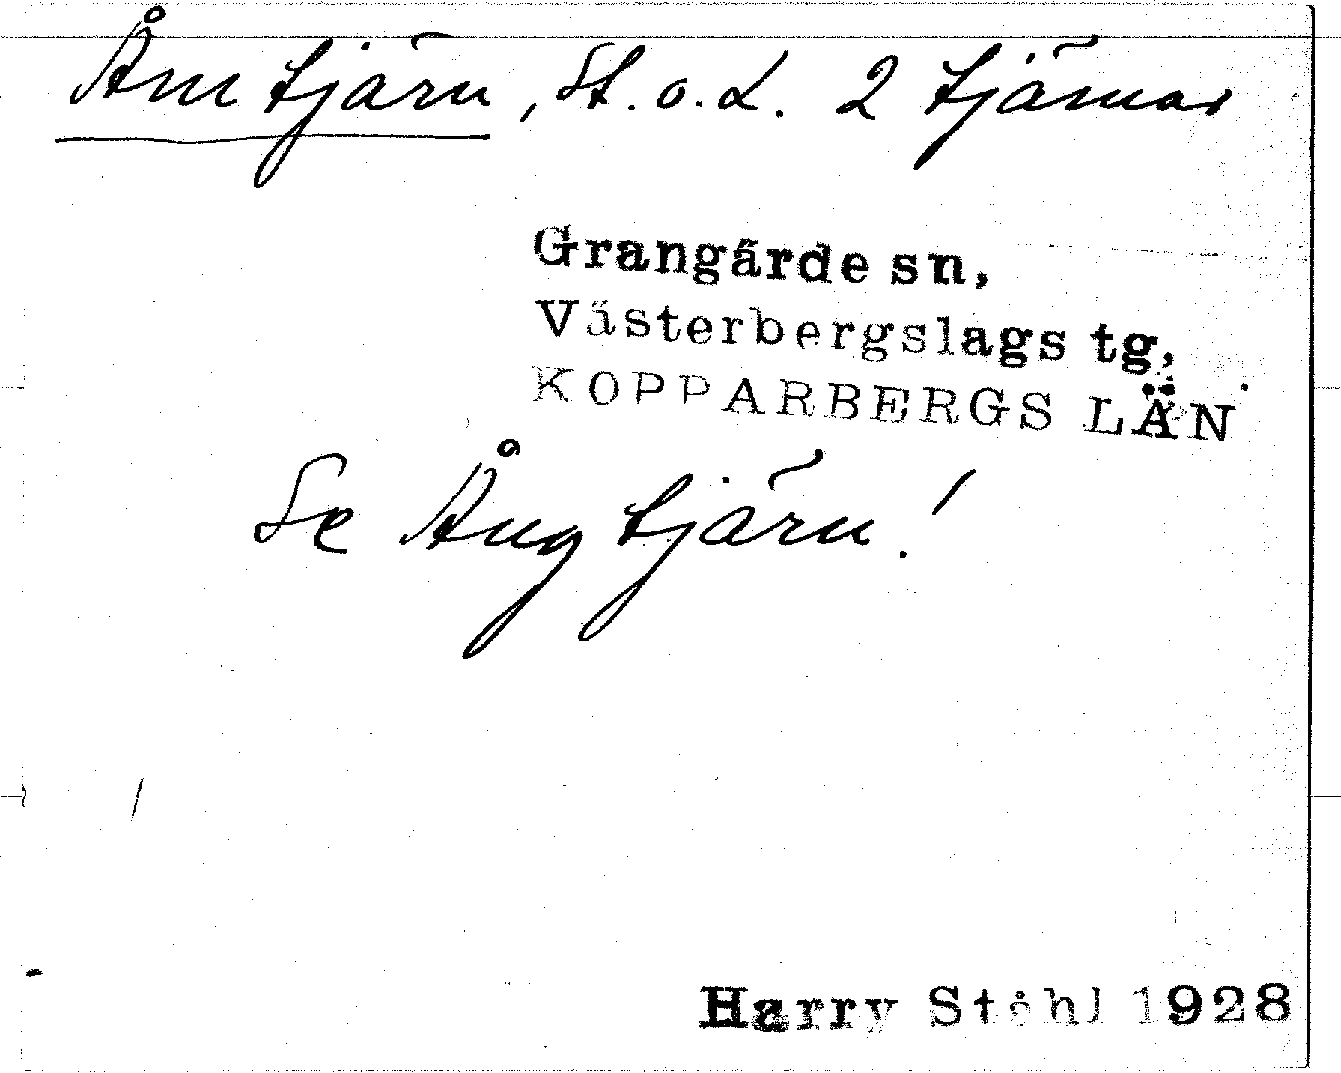 Åmtjärn, St. o. L. 2 tjärnar
Grangärde sn,
Västerbergslags tg,
KOPPARBERGS LÄN
Se Ångtjärn!
Harry Ståhl 1928